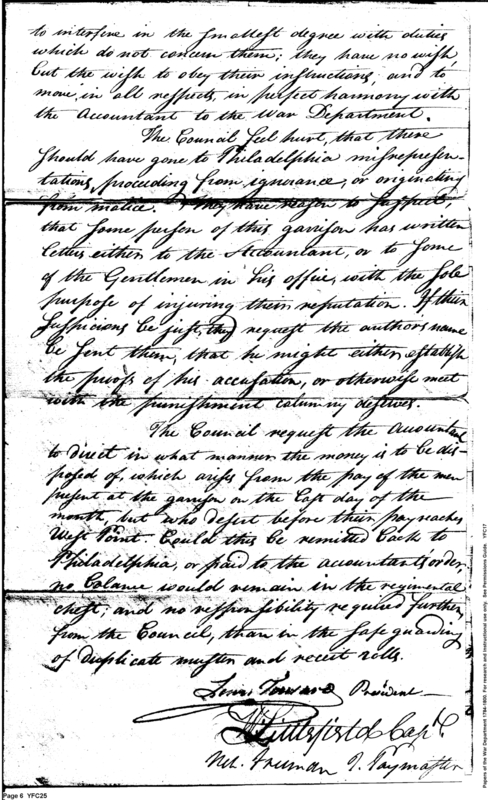 to interfere in the smallest degree with duties
which do not concern them; they have no wish,
but the wish to obey their instructions, and to
move, in all respects, in perfect harmony with
the Accountant to the War Department.
The Council feel hurt, that there
should have gone to Philadelphia misrepresen-
tations, proceeding from ignorance, or originating
from malice. They have reason to suspect
that some person of this garrison has written
letters either to the Accountant, or to some
of the Gentlemen in his office, with the sole
purpose of injuring their reputation. If their
suspicions be just, they request the authors name
be sent them, that he might either establish
the proofs of his accusation, or otherwise meet
with the punishment calumny deserves.
The Council request the Accountant
to direct in what manner the money is to be dis-
posed of, which arises from the pay of the men
present at the garrison on the last day of the
month, but who desert before their pay reaches
West Point. Could this be remitted back to
Philadelphia, or paid to the accountants order,
no balance would remain in the regimental
chest; and no responsibility required further
from the Council, than in the safe guarding
of duplicate muster and receit rolls.
Lewis Tousard President
Littlefield Capt
Net. Freeman Paymaster
Page 6 YFC25
Papers of the War Department 1784-1800. For research and instructional use only. See Permissions Guide. YFC17